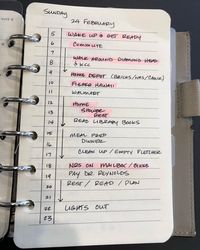 SUNDAY
24 FEBRUARY
5 WAKE UP & GET READY
6 COMMUTE
7
8 WALK AROUND DIAMOND HEAD
& KCC
9 HOME DEPOT
10 FISHER HAWAII
11 WALMART
12 HOME
13 SHOWER
REST
14 READ LIBRARY BOOKS
15 MEAL PREP
16 DINNER
17 CLEAN UP / EMPTY
18
19 PAY DR. REYNOLDS
20 REST / READ / PLAN
21
22 LIGHTS OUT
23